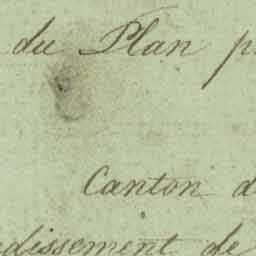 du Plan p
Canton d
dissement de